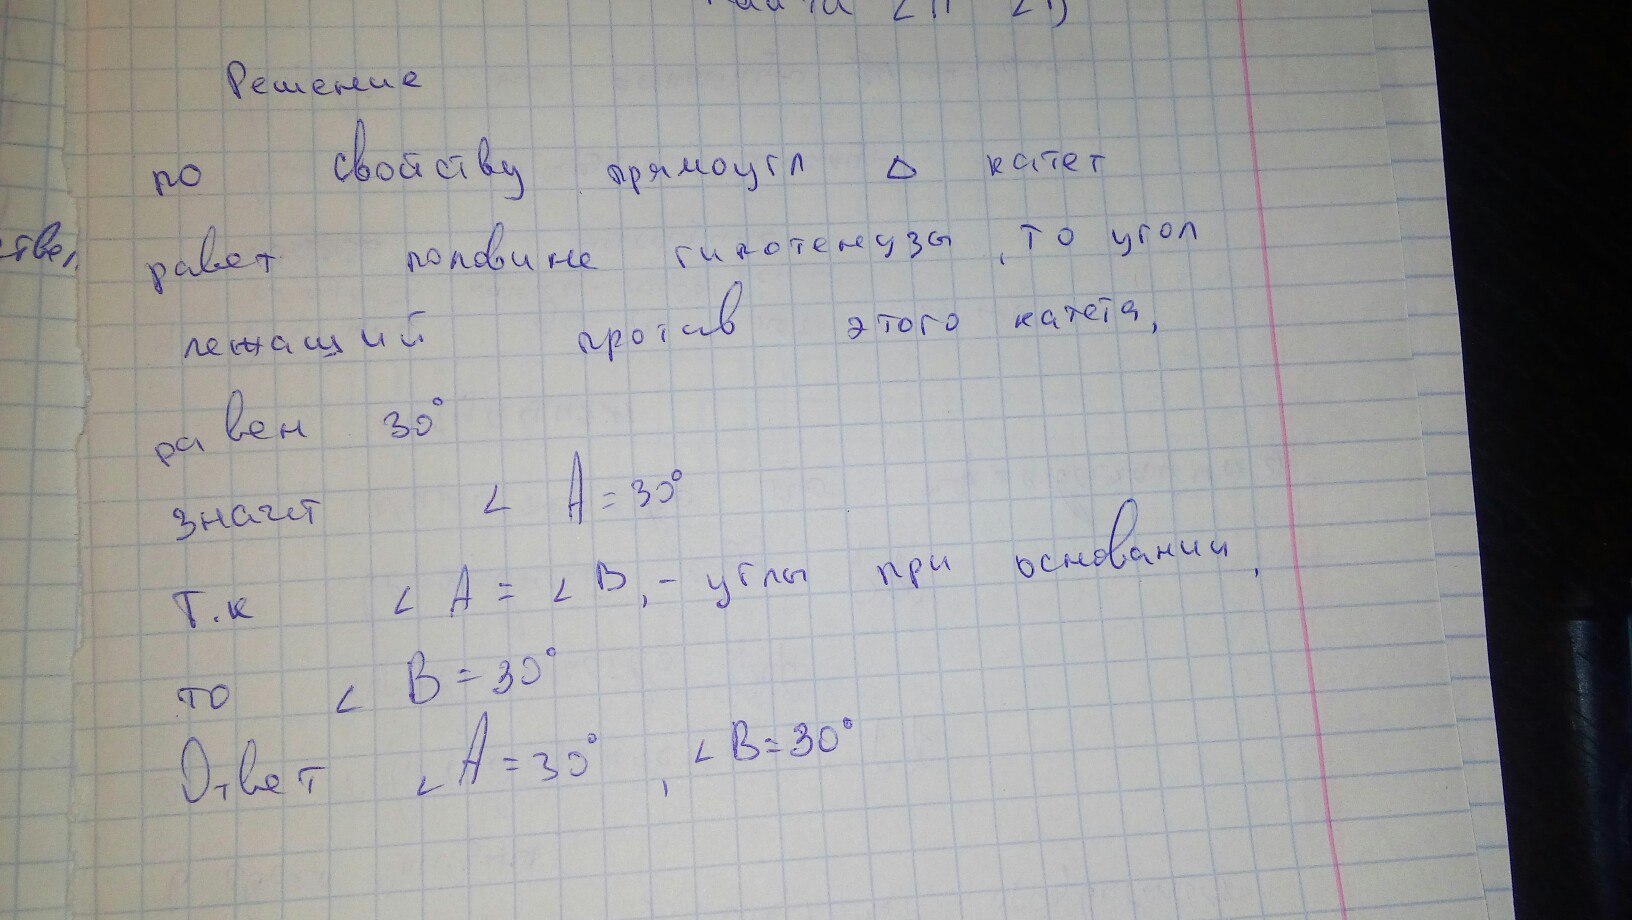 Решение
по свойству прямоугл Δ катет
равет половине гипотенузы, то угол
лежащий против этого катета,
равен 30°
значит ∠ A = 30°
Т.к ∠ A = ∠ B, - углы при основании,
то ∠ B = 30°
Ответ ∠ A = 30°, ∠ B = 30°